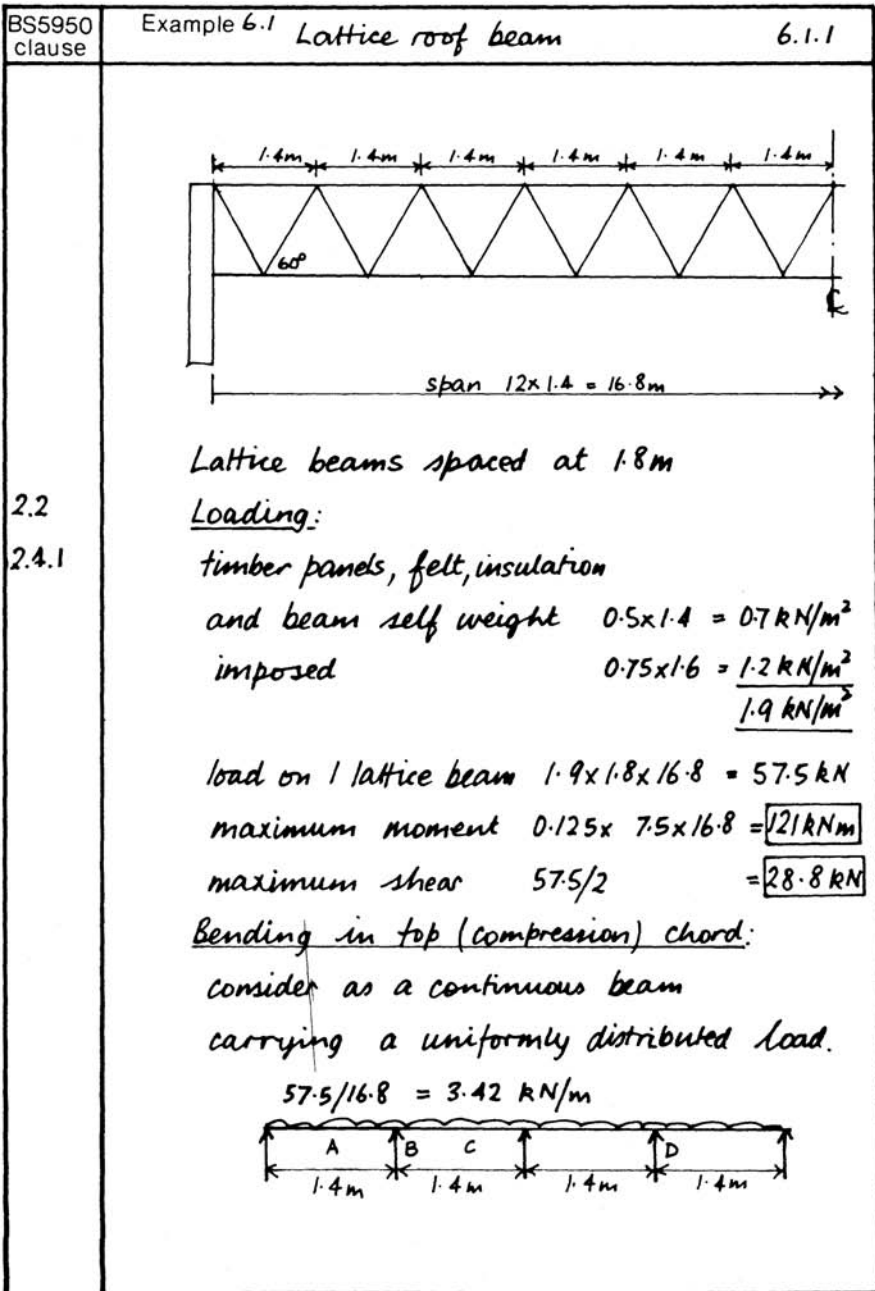 BS5950 clause
Example 6.1 Lattice roof beam 6.1.1
1.4m 1.4m 1.4m 1.4m 1.4m 1.4m
60°
span 12×1.4 = 16.8m
Lattice beams spaced at 1.8m
2.2 Loading:
2.4.1 timber panels, felt, insulation
and beam self weight 0.5×1.4 = 0.7 kN/m²
imposed 0.75×1.6 = 1.2 kN/m²
1.9 kN/m²
load on 1 lattice beam 1.9×1.8×16.8 = 57.5 kN
maximum moment 0.125× 7.5×16.8 = 121kNm
maximum shear 57.5/2 = 28.8 kN
Bending in top (compression) chord:
consider as a continuous beam
carrying a uniformly distributed load.
57.5/16.8 = 3.42 kN/m
A B C D
1.4m 1.4m 1.4m 1.4m